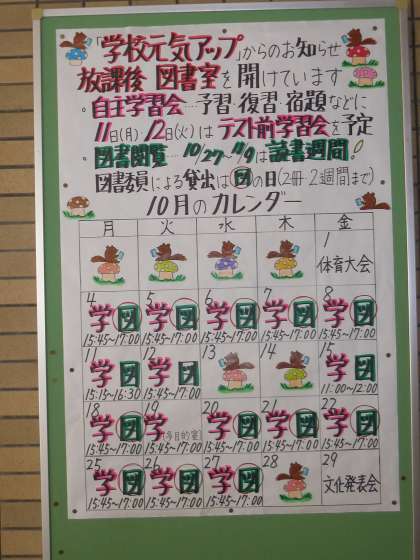 「学校元気アップ」からのお知らせ
放課後 図書室を開けています
・自主学習会…予習・復習・宿題などに
11日(月)12日(火)はテスト前学習会を予定
・図書閲覧…10/27~11/9は読書週間!
図書委員による貸出は図の日(2冊・2週間まで)
10月のカレンダー
月 火 水 木 金
1
体育大会
4 5 6 7 8
学図 学図 学図 学図 学図
15:45~17:00 15:45~17:00 15:45~17:00 15:45~17:00 15:45~17:00
11 12 13 14 15
学図 学図 学図
15:15~16:30 15:45~17:00 11:00~12:00
18 19 20 21 22
学図 学(多目的室) 学図 学図 学図
15:45~17:00 15:45~17:00 15:45~17:00 15:45~17:00 15:45~17:00
25 26 27 28 29
学図 学図 学図 文化発表会
15:45~17:00 15:45~17:00 15:45~17:00